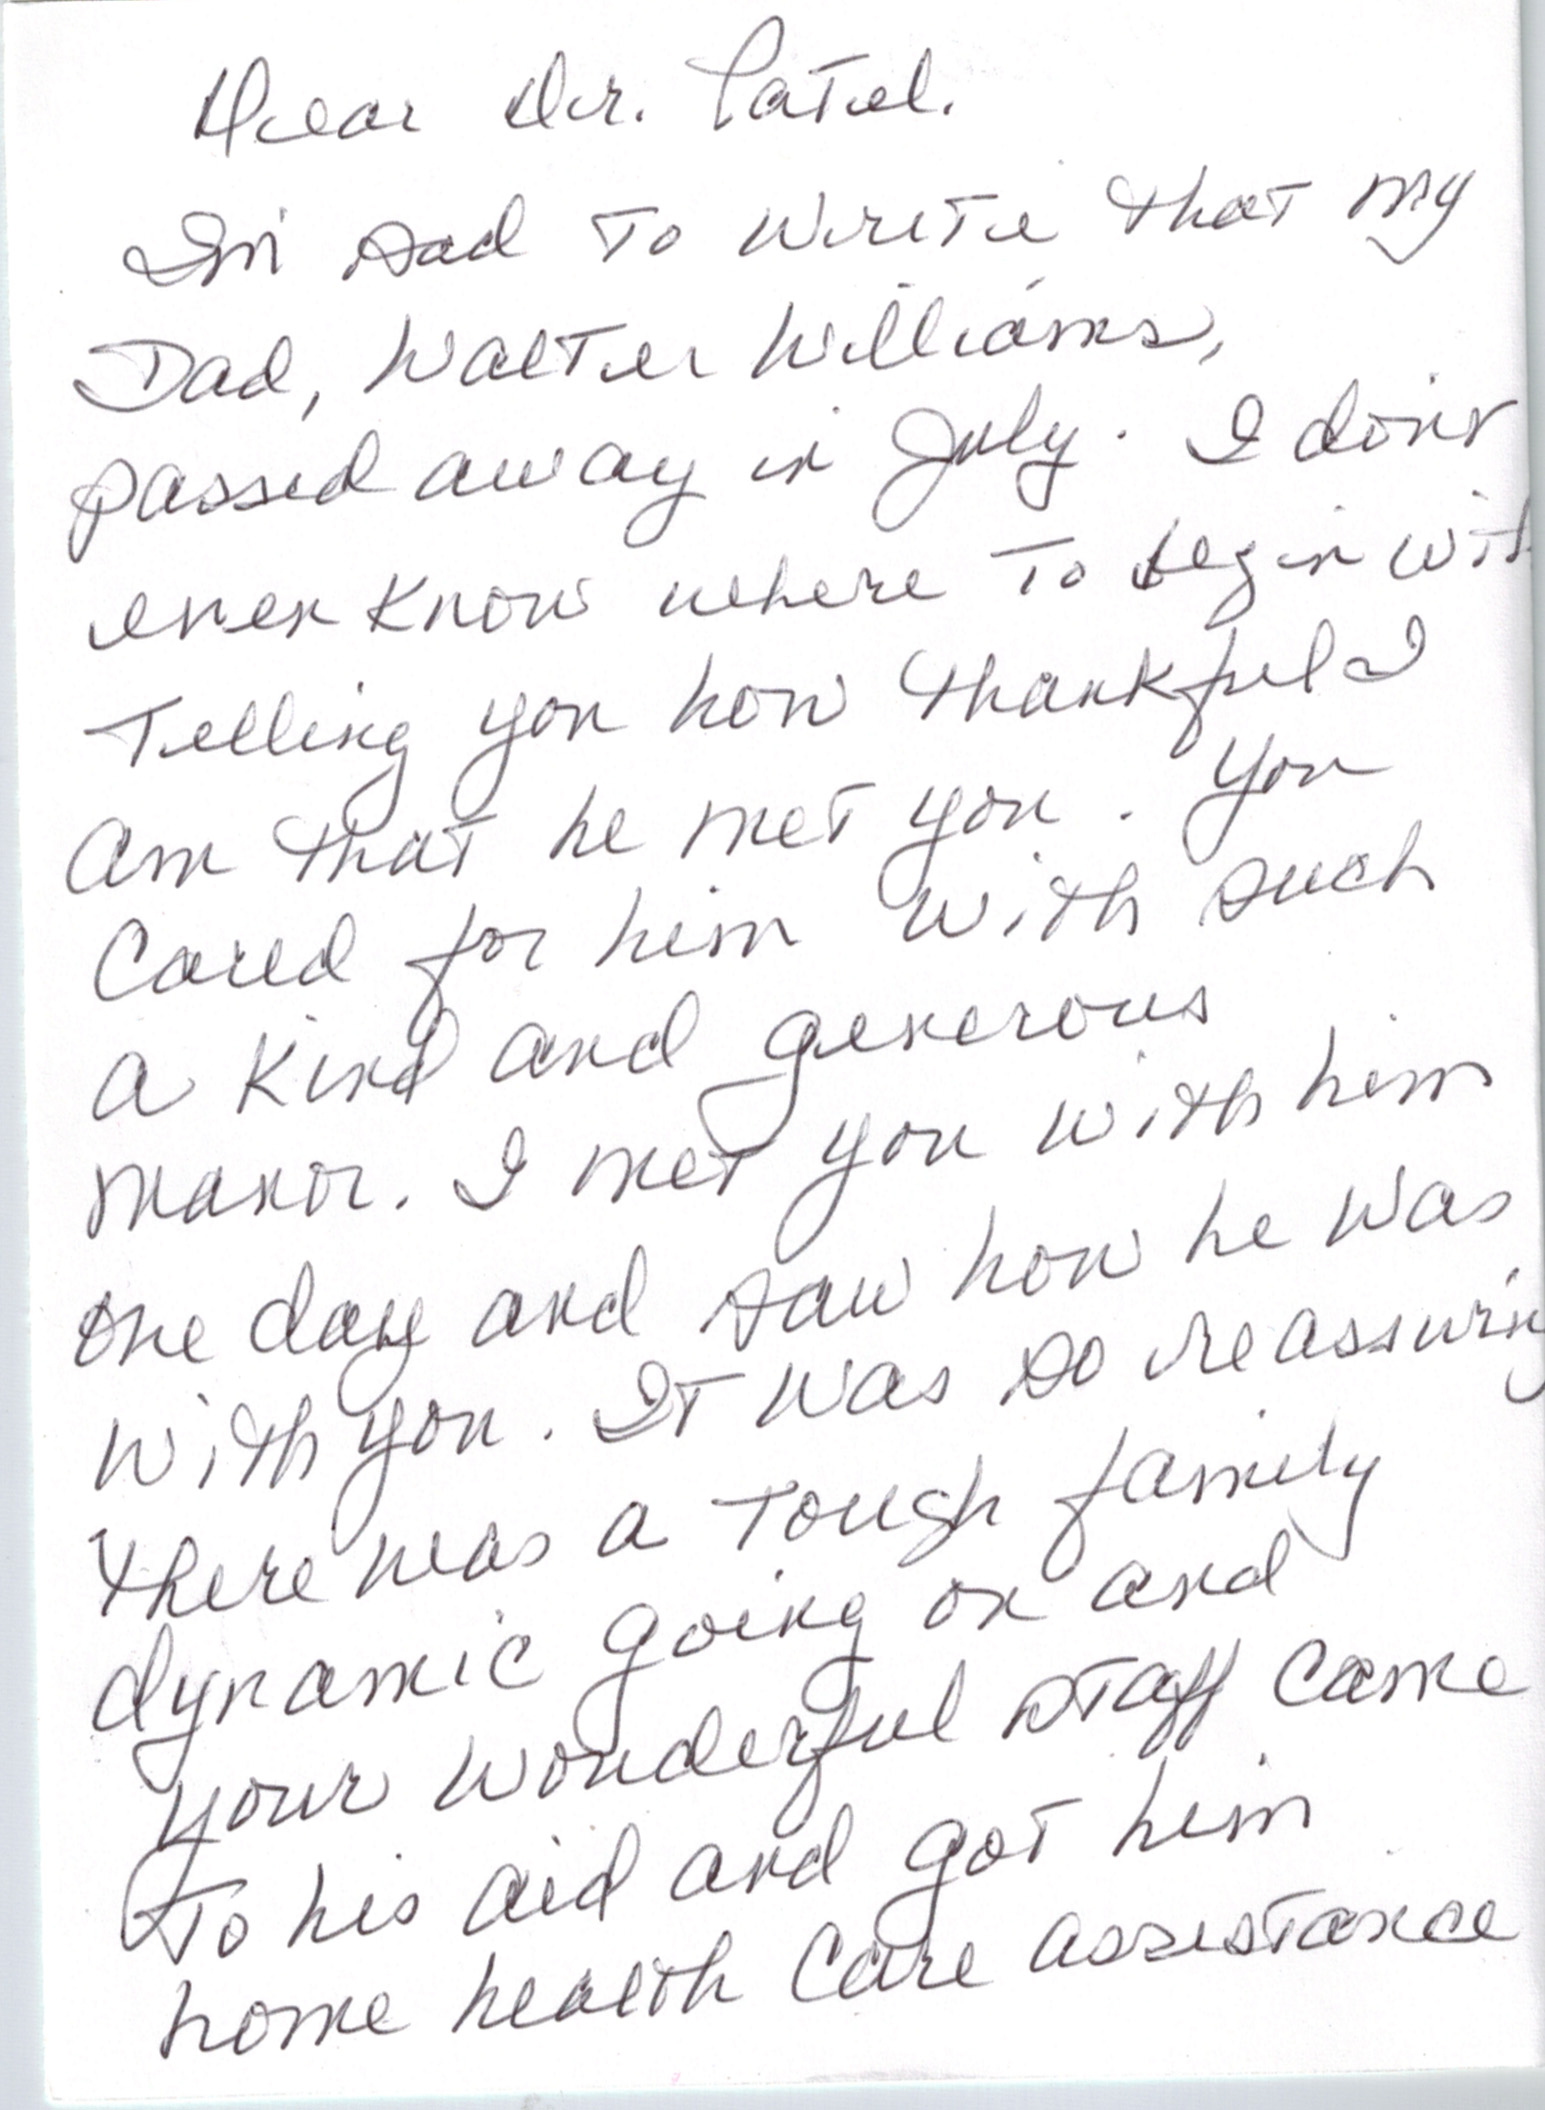 Dear Dr. Patel.
I'm sad to write that my
Dad, Walter Williams,
passed away in July. I don't
even know where to begin with
telling you how thankful I
am that he met you. You
cared for him with such
a kind and generous
manor. I met you with him
one day and saw how he was
with you. It was so reassuring
there was a tough family
dynamic going on and
your wonderful staff came
to his aid and got him
home health care assistance